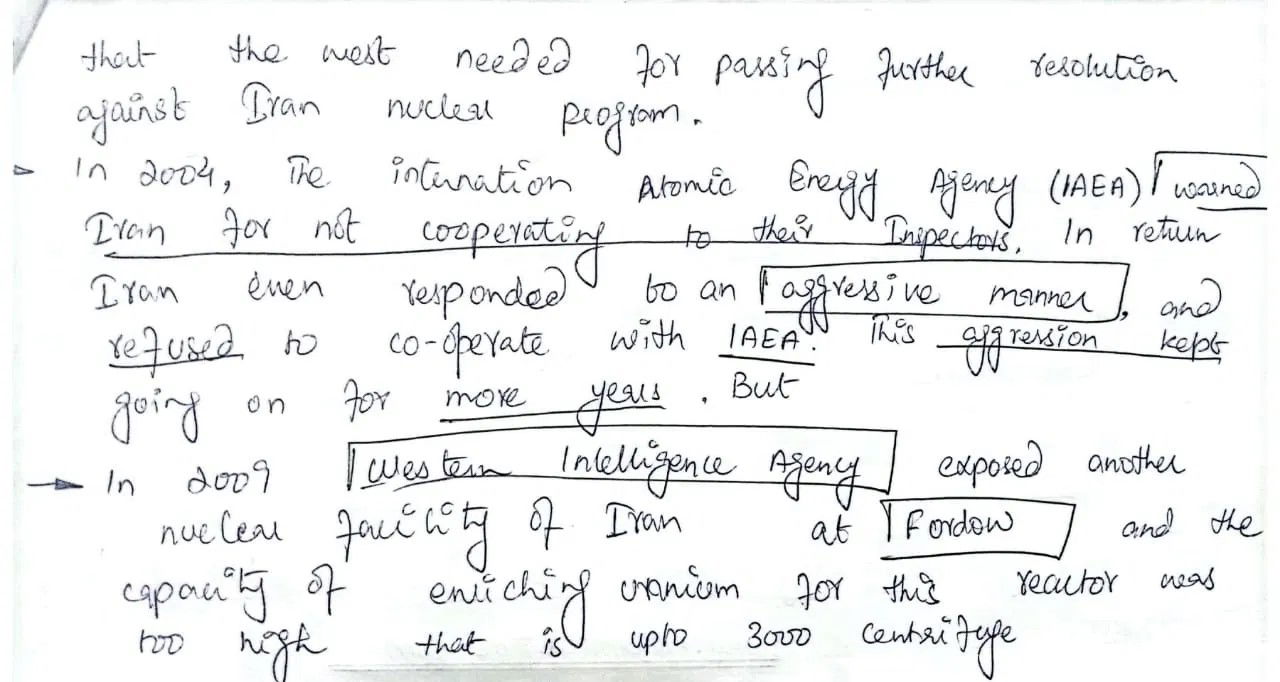 that the west needed for passing further resolution
against Iran nuclear program.
In 2004, The internation Atomic Energy Agency (IAEA) warned
Iran for not cooperating to their Inspectors. In return
Iran even responded to an aggressive manner, and
refused to co-operate with IAEA. This aggression kept
going on for more years. But
In 2009 Western Intelligence Agency exposed another
nuclear facility of Iran at Fordow and the
capacity of enriching uranium for this reactor was
too high that is upto 3000 centrifuge